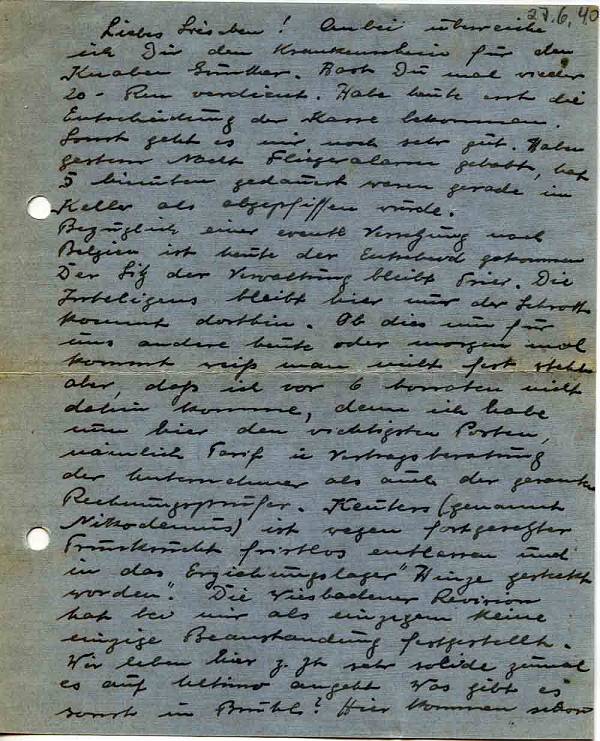 27.6.40
Liebes Lieschen! Anbei überreiche
ich Dir den Krankenschein für den
Knaben Günther. Hast Du mal wieder
20.- Rm verdient. Habe heute erst die
Entscheidung der Kasse bekommen.
Sonst geht es mir noch sehr gut. Haben
gestern Nacht Fliegeralarm gehabt, hat
5 Minuten gedauert waren gerade im
Keller als abgepfiffen wurde.
Bezüglich einer eventl Versetzung nach
Belgien ist heute der Entscheid gekommen
Der Sitz der Verwaltung bleibt Trier. Die
Intelligens bleibt hier nur der Schrott
kommt dorthin. Ob dies nun für
uns andere heute oder morgen mal
kommt weiß man nicht fest steht
aber, daß ich vor 6 Monaten nicht
dahin komme, denn ich habe
nun hier den wichtigsten Posten,
nämlich Tarif u Vertragsberatung
der Unternehmer als auch der gesamte
Rechnungsprüfer. Keuters (genannt
Nikodemus) ist wegen fortgesetzter
Trunksucht fristlos entlassen und
in das Erziehungslager "Hinze gesteckt
worden". Die Wiesbadener Revision
hat bei mir als einzigem keine
einzige Beanstandung festgestellt.
Wir leben hier z. Zt sehr solide zumal
es auf Ultimo angeht Was gibt es
sonst in Brühl? Hier kommen schon